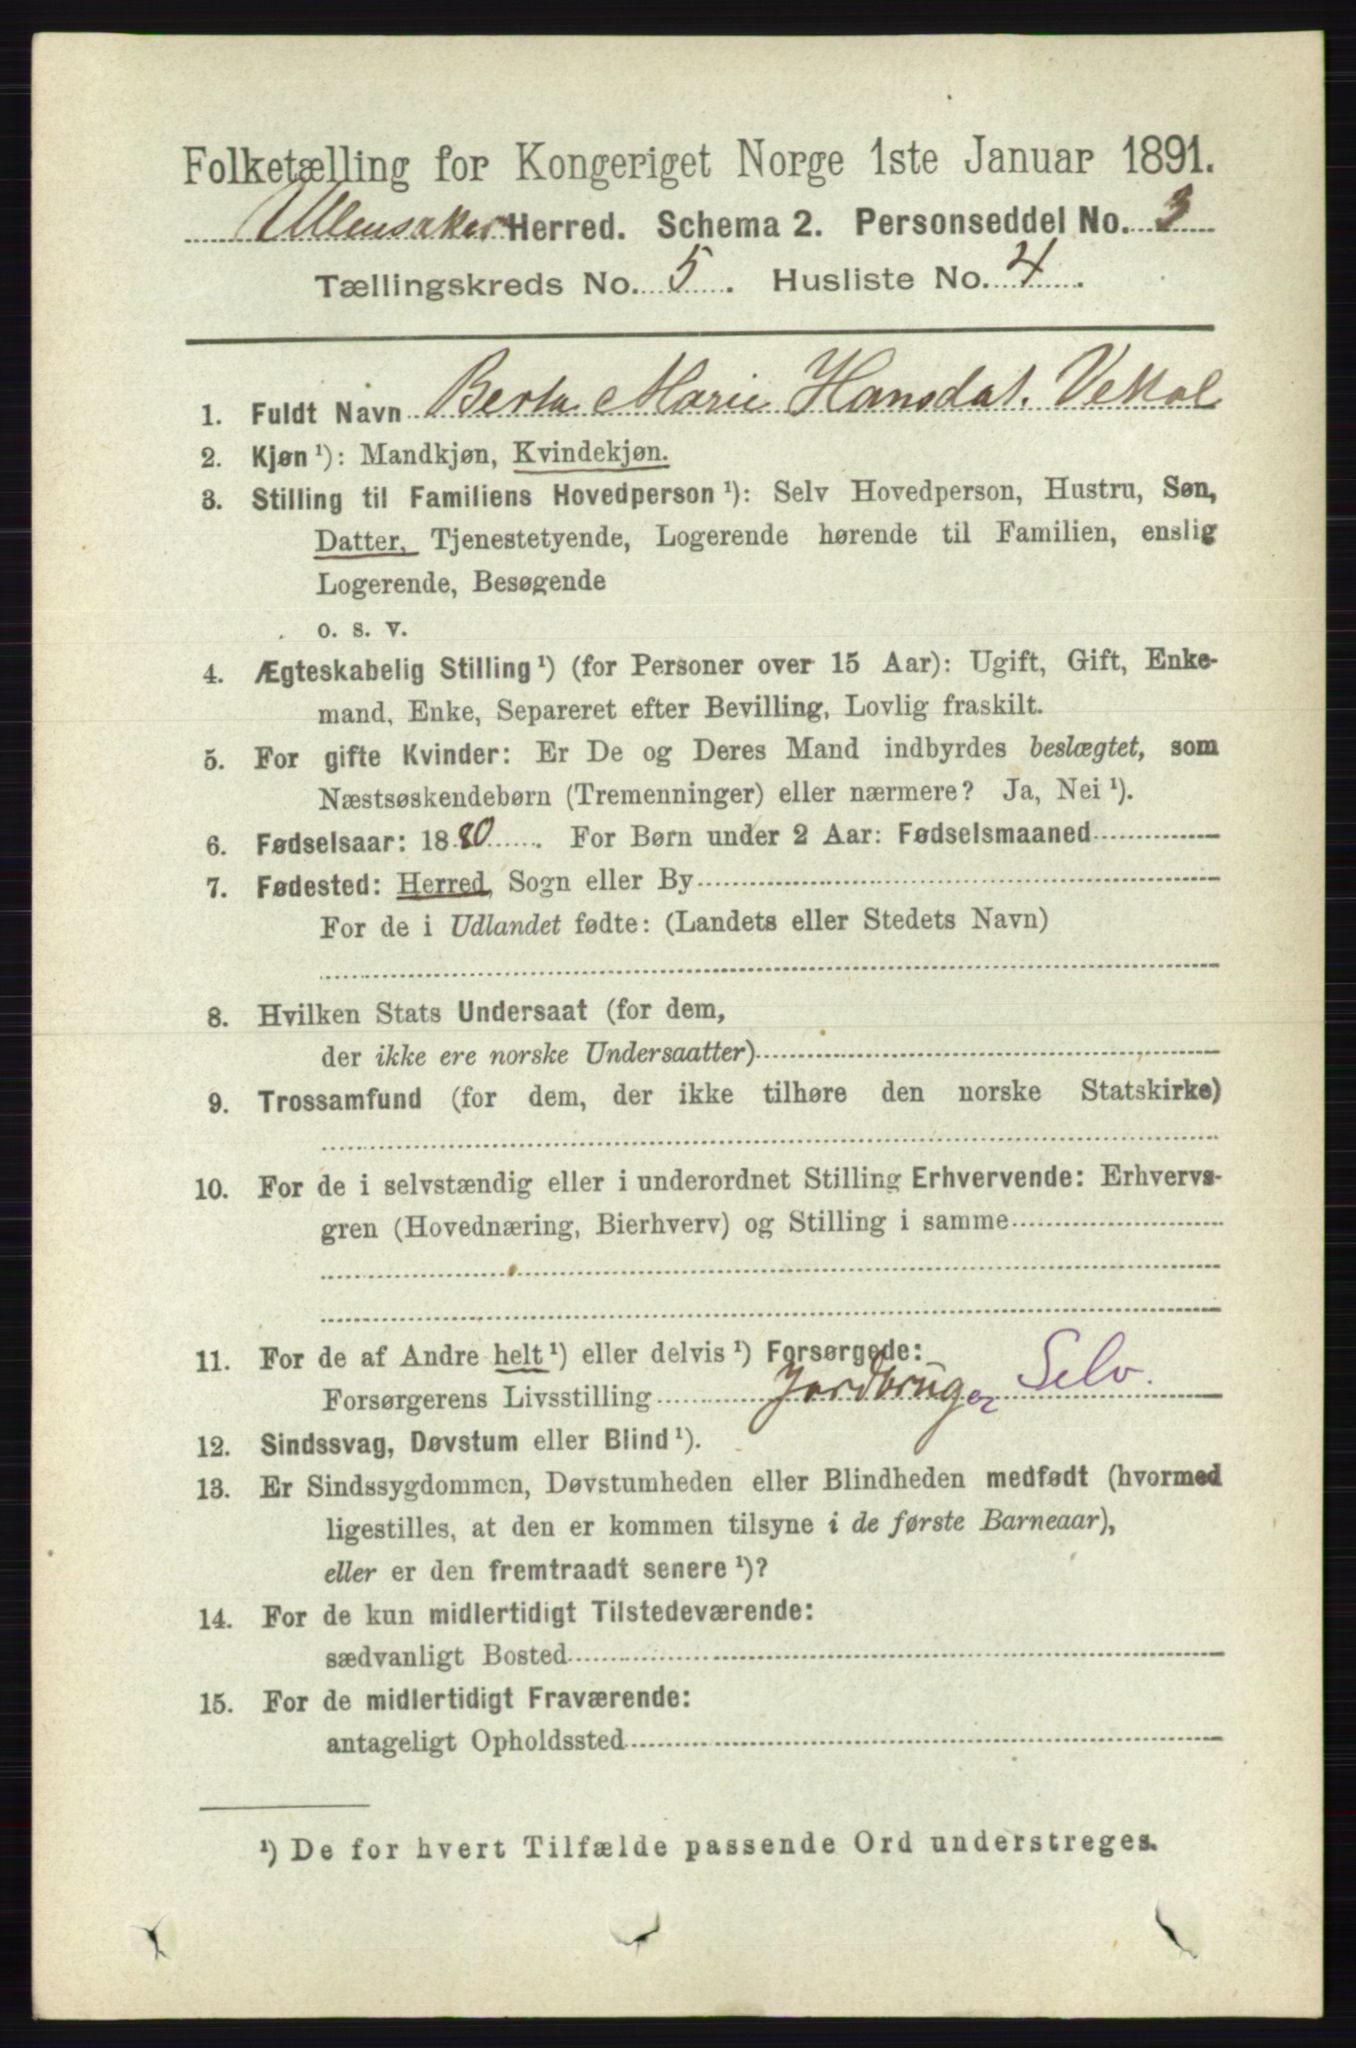 Folketælling for Kongeriget Norge 1ste Januar 1891.
Ullensaker Herred. Schema 2. Personseddel No. 3
Tællingskreds No. 5. Husliste No. 4.
1. Fuldt Navn Berta Marie Hansdat.
2. Kjøn ¹): Mandkjøn, Kvindekjøn.
3. Stilling til Familiens Hovedperson ¹): Selv Hovedperson, Hustru, Søn,
Datter, Tjenestetyende, Logerende hørende til Familien, enslig
Logerende, Besøgende
o. s. v.
4. Ægteskabelig Stilling ¹) (for Personer over 15 Aar): Ugift, Gift, Enke-
mand, Enke, Separeret efter Bevilling, Lovlig fraskilt.
5. For gifte Kvinder: Er De og Deres Mand indbyrdes beslægtet, som
Næstsøskendebørn (Tremenninger) eller nærmere? Ja, Nei ¹).
6. Fødselsaar: 1880. For Børn under 2 Aar: Fødselsmaaned
7. Fødested: Herred, Sogn eller By
For de i Udlandet fødte: (Landets eller Stedets Navn)
8. Hvilken Stats Undersaat (for dem,
der ikke ere norske Undersaatter)
9. Trossamfund (for dem, der ikke tilhøre den norske Statskirke)
10. For de i selvstændig eller i underordnet Stilling Erhvervende: Erhvervs-
gren (Hovednæring, Bierhverv) og Stilling i samme
11. For de af Andre helt ¹) eller delvis ¹) Forsørgede:
Forsørgerens Livsstilling Jordbruger Selv.
12. Sindssvag, Døvstum eller Blind ¹).
13. Er Sindssygdommen, Døvstumheden eller Blindheden medfødt (hvormed
ligestilles, at den er kommen tilsyne i de første Barneaar),
eller er den fremtraadt senere ¹)?
14. For de kun midlertidigt Tilstedeværende:
sædvanligt Bosted
15. For de midlertidigt Fraværende:
antageligt Opholdssted
¹) De for hvert Tilfælde passende Ord understreges.